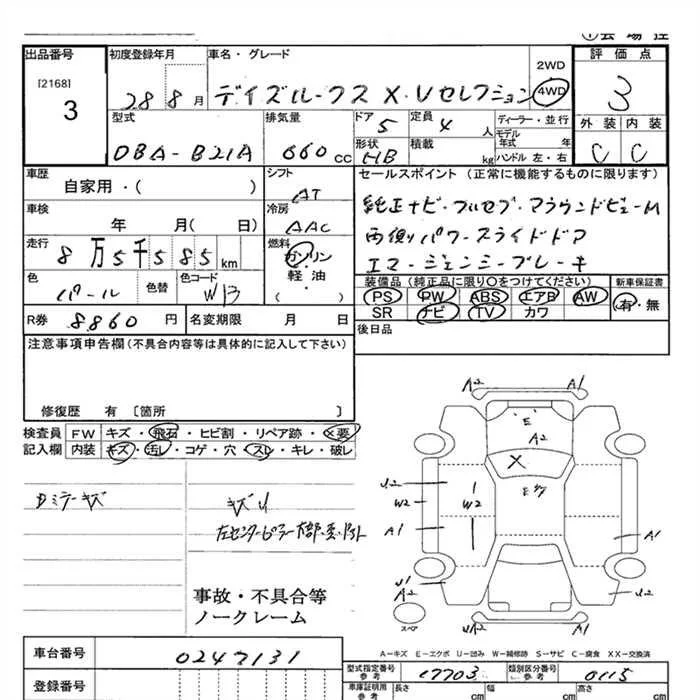 出品番号
[2168]
3
初度登録年月
28 8 月
車名・グレード
デイズルークス X・Vセレクション
2WD
4WD
評価点
3
外装 内装
C C
型式
DBA-B21A
排気量
660 cc
ドア
5
定員
4 人
形状
HB
積載
kg
ディーラー・並行
モデル年式 年
ハンドル 左・右
車歴
自家用・( )
シフト
AT
セールスポイント (正常に機能するものに限ります)
純正ナビ・フルセグ・アラウンドビューM
両側パワースライドドア
エマージェンシーブレーキ
車検
年 月( 日)
冷房
AAC
走行
8万5千585 km
燃料
ガソリン
軽・油
( )
色
パール
色替
色コード
W13
装備品 (純正品に限り○をつけてください)
PS PW ABS エアB AW
SR ナビ TV カワ
新車保証書
有・無
R券 8860 円
名変期限 月 日
後日品
注意事項申告欄(不具合内容等は具体的に記入して下さい)
修復歴 有 〔箇所 〕
検査員 FW キズ・飛石・ヒビ割・リペア跡・X要
記入欄 内装 キズ・汚レ・コゲ・穴・スレ・キレ・破レ
Dミラーキズ
キズU
事故・不具合等
ノークレーム
A2 A1
E
A2
X
U2
W2
W2
A1
A1
U1
A2
U2
U2
A1
スペア
A-キズ E-エクボ U-凹み W-補修跡 S-サビ C-腐食 XX-交換済
車台番号 0247131
型式指定番号 参考 17703
類別区分番号 参考 0115
登録番号
車庫証明用 参考
長さ 幅 高さ